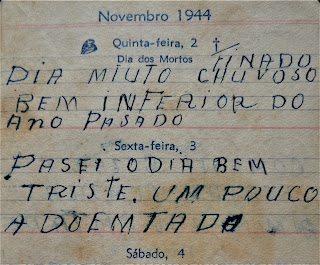 Novembro 1944
Quinta-feira, 2 †
Dia dos Mortos
FINADO
DIA MIUTO CHUVOSO
BEM INFERIOR DO
ANO PASADO
Sexta-feira, 3
PASEI O DIA BEM
TRISTE. UM POUCO
ADOEMTADO
Sábado, 4